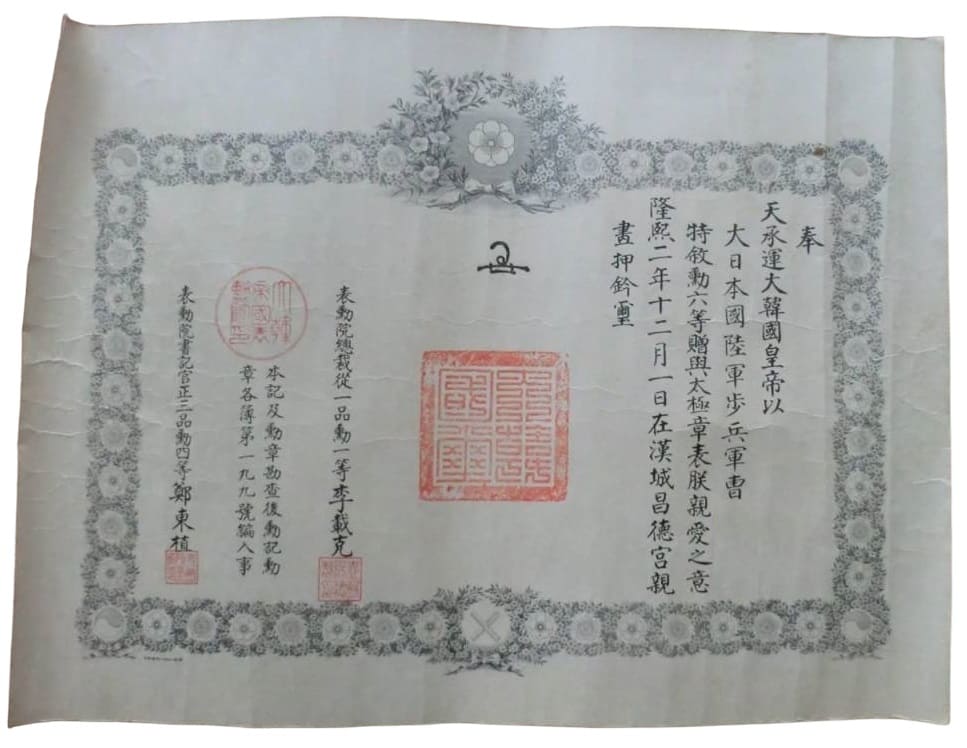 奉
天承運大韓國皇帝以
大日本國陸軍歩兵軍曹
特敘勳六等贈與太極章表朕親愛之意
隆熙二年十二月一日在漢城昌德宮親
畫押鈐璽
表勳院總裁從一品勳一等李載克
本記及勳章勘查後勳記勳
章各簿第一九九號編入事
表勳院書記官正三品勳四等鄭東植